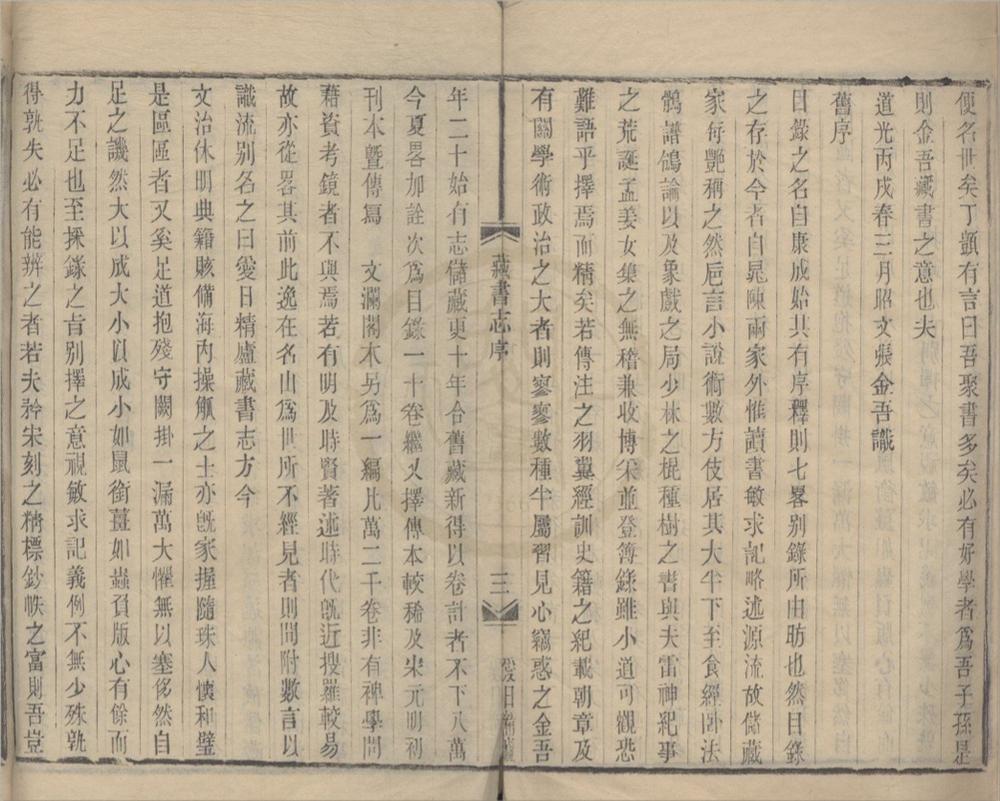 便名世矣丁顗有言曰吾聚書多矣必有好學者爲吾子孫是
則金吾藏書之意也夫
道光丙戌春三月昭文張金吾識
舊序
目錄之名自康成始其有序釋則七畧別錄所由昉也然目錄
之存於今者自晁陳兩家外惟讀書敏求記略述源流故儲藏
家每艷稱之然卮言小說術數方伎居其大半下至食經卧法
鶴譜鴿論以及象戲之局少林之棍種樹之書與夫雷神紀事
之荒誕孟姜女集之無稽兼收博采並登簿錄雖小道可觀恐
難語乎擇焉而精矣若傳注之羽翼經訓史籍之紀載朝章及
有關學術政治之大者則寥寥數種半屬習見心竊惑之金吾
藏書志序
三
愛日精廬
年二十始有志儲藏更十年合舊藏新得以卷計者不下八萬
今夏畧加詮次爲目錄一十卷繼又擇傳本較稀及宋元明初
刊本曁傳寫 文瀾閣本另爲一編凡萬二千卷非有裨學問
藉資考鏡者不與焉若有明及時賢著述時代旣近搜羅較易
故亦從畧其前此逸在名山爲世所不經見者則間附數言以
識流別名之曰愛日精廬藏書志方今
文治休明典籍賅備海內操觚之士亦旣家握隨珠人懷和璧
是區區者又奚足道抱殘守闕掛一漏萬大懼無以塞侈然自
足之譏然大以成大小以成小如鼠銜薑如蟲負版心有餘而
力不足也至採錄之㫖別擇之意視敏求記義例不無少殊孰
得孰失必有能辨之者若夫矜宋刻之精標鈔帙之富則吾豈